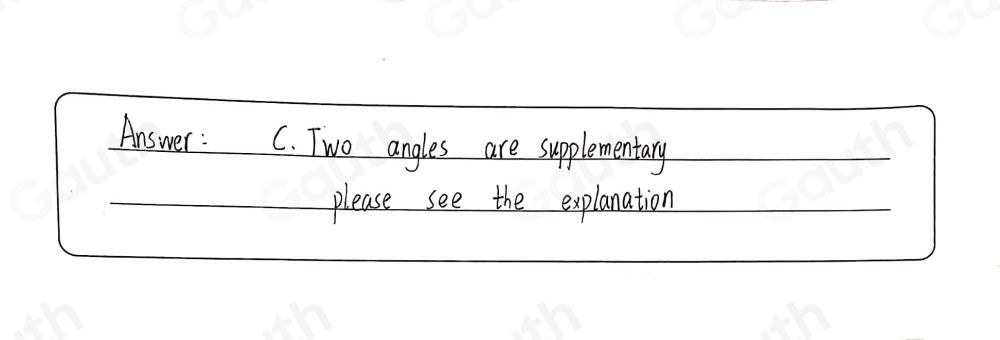 Answer: C. Two angles are supplementary
please see the explanation